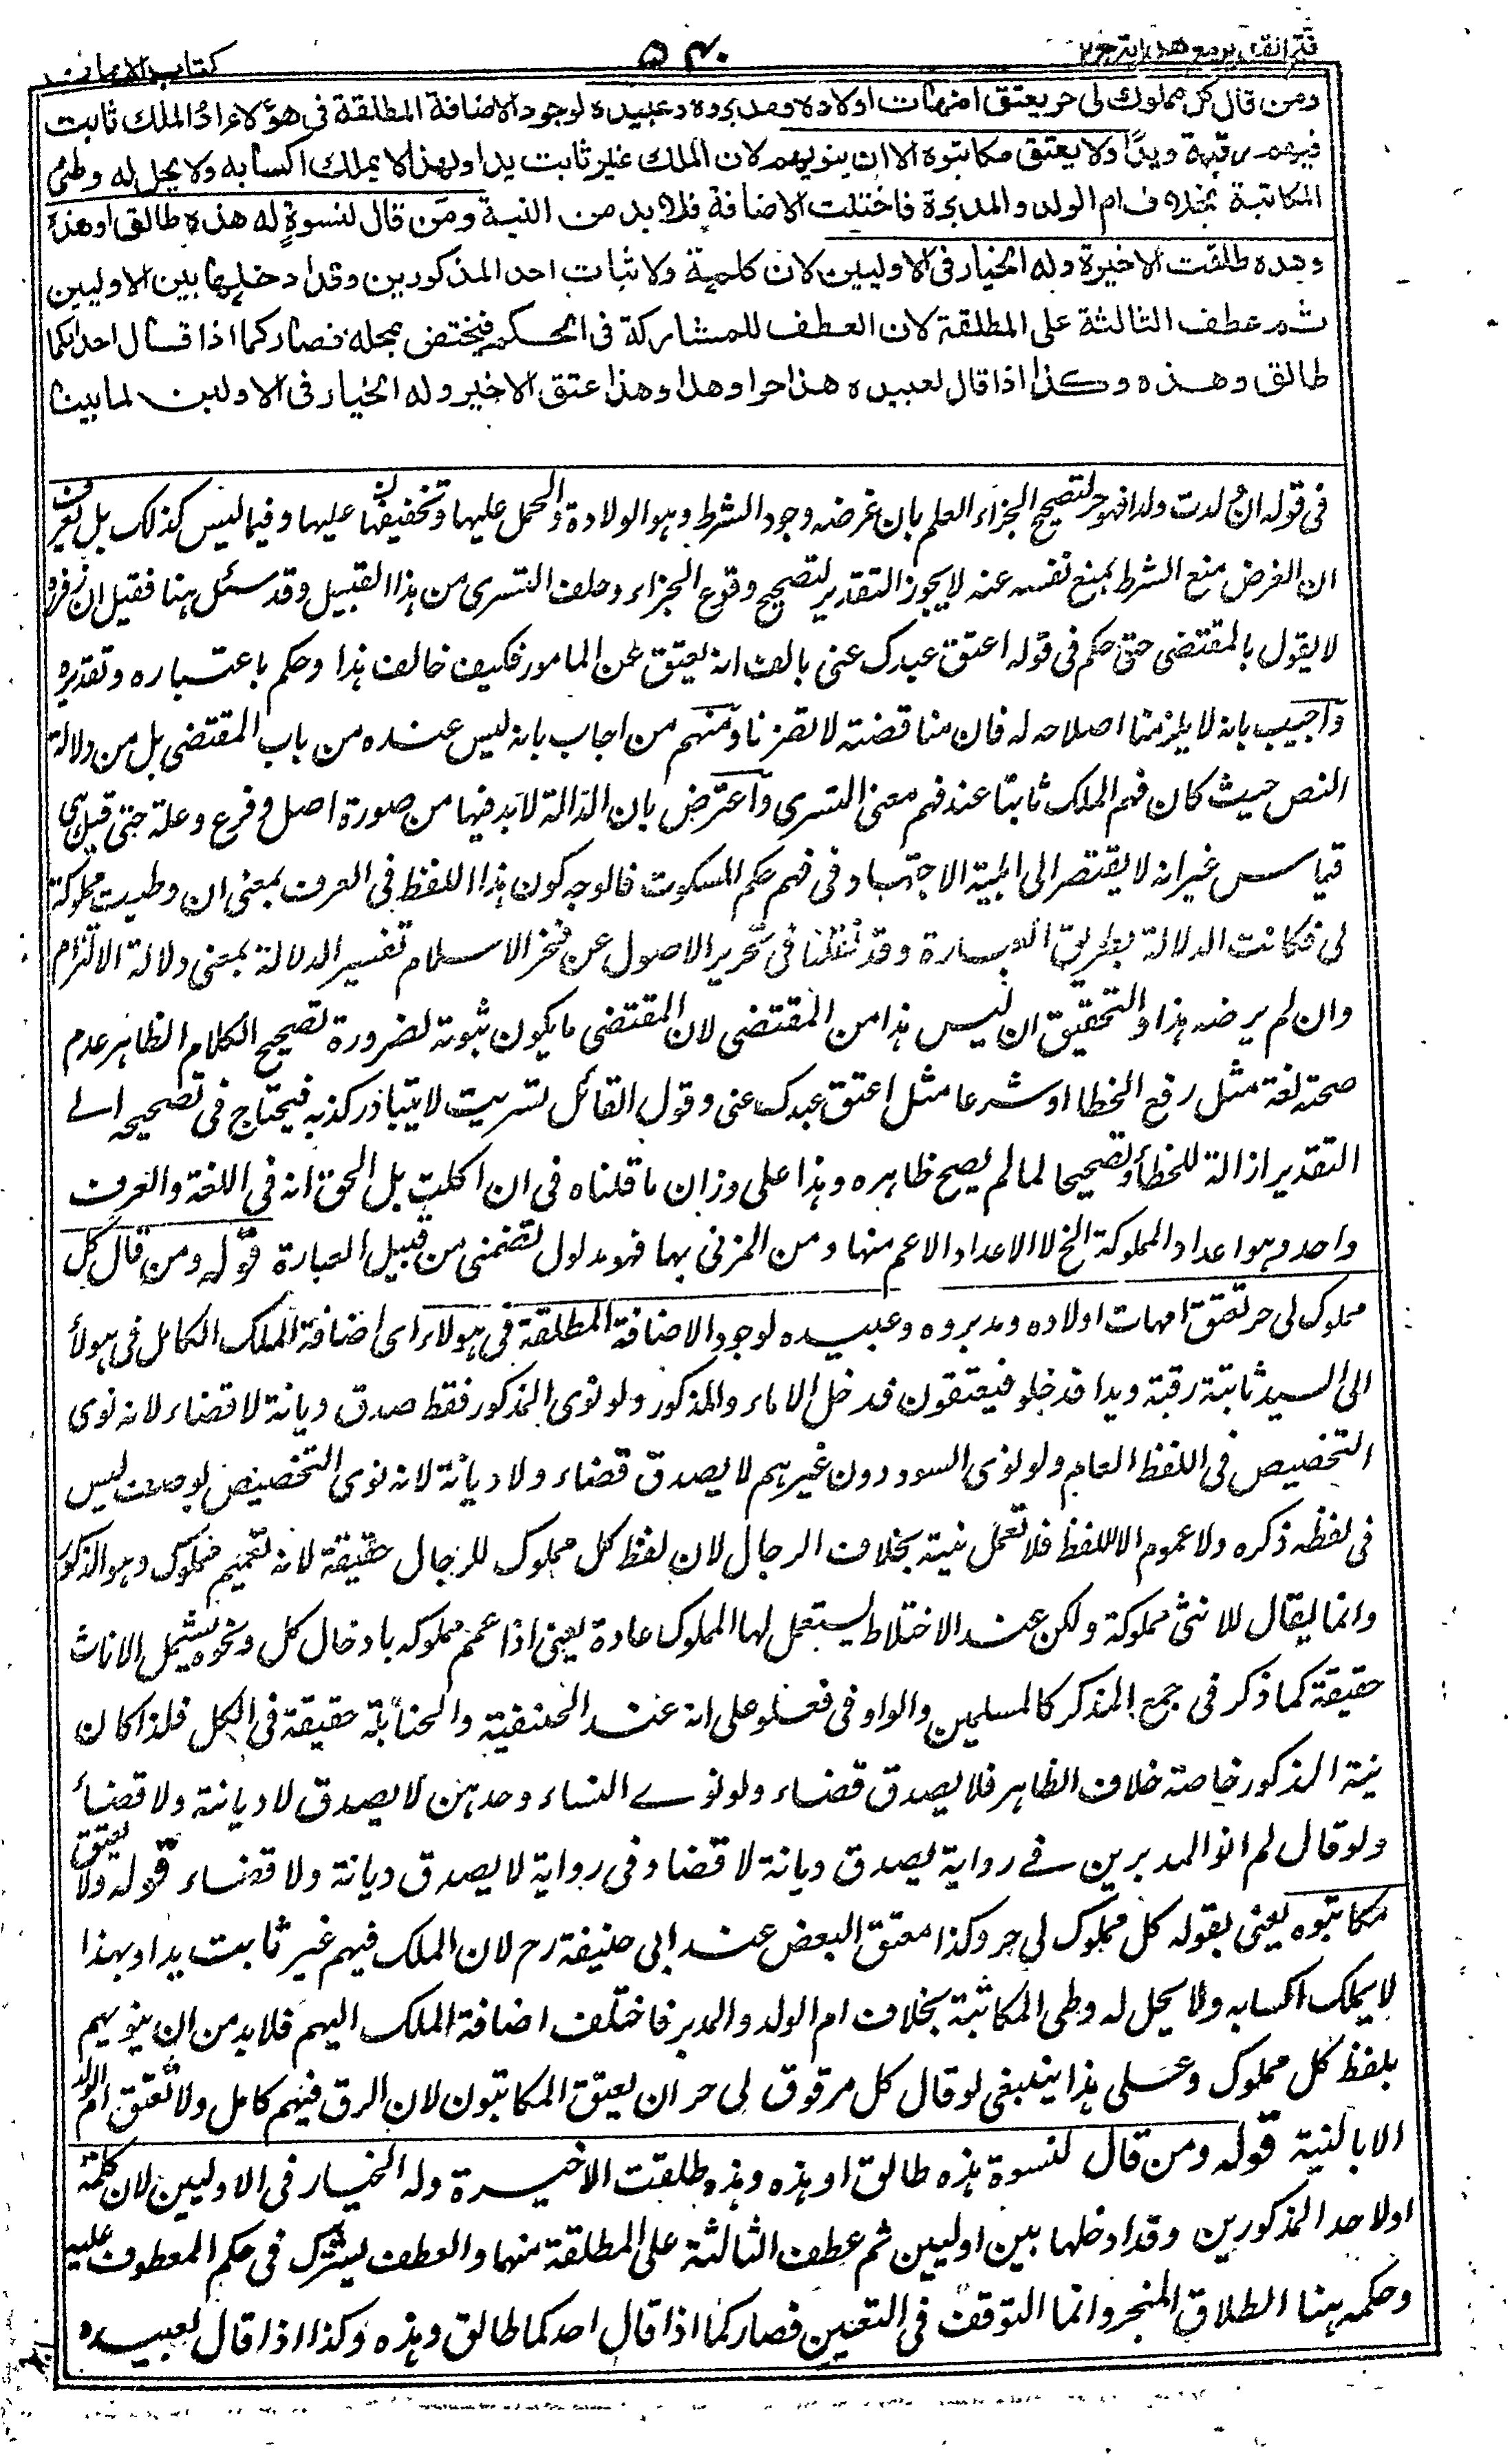 فتح القدير مع هدايه ج ٢
٥٤٠
كتاب الايمان
ومن قال كل مملوك لى حر يعتق امهات اولاده ومدبروه وعبيده لوجود الاضافة المطلقة فى هؤلاء اذ الملك ثابت
فيهم رقبة ويدًا ولا يعتق مكاتبوه الا ان ينويهم لان الملك غير ثابت يدا ولهذا لا يملك اكسابه ولا يحل له وطئ
المكاتبة بخلاف ام الولد والمدبرة فاختلت الاضافة فلا بد من النية ومن قال لنسوةٍ له هذه طالق او هذه
وهذه طلقت الاخيرة وله الخيار فى الاوليين لان كلمة او لاثبات احد المذكورين وقد ادخلها بين الاوليين
ثم عطف الثالثة على المطلقة لان العطف للمشاركة فى الحكم فيختص بمحله فصار كما اذا قال احدٰكما
طالق وهذه وكذا اذا قال لعبيده هذا حر او هذا وهذا عتق الاخير وله الخيار فى الاولين لما بينا
فى قوله ان ولدت ولدا فهو حر لتصحيح الجزاء للعلم بان غرضه وجود الشرط وهو الولادة والحمل عليها وتخفيفها عليها وفيما ليس كذلك بل يعرف
ان الغرض منع الشرط بمنع نفسه عنه لا يجوز التقدير لتصحيح وقوع الجزاء وحلف التسرى من هذا القبيل وقد سئل هنا فقيل ان زفر
لا يقول بالمقتضى حتى حكم فى قوله اعتق عبدك عنى بالف انه يعتق عن المامور فكيف خالف هذا وحكم باعتباره وتقديره
واجيب بانه لا يلزمنا اصلاحه له فان مناقضته لا تضرنا ومنهم من اجاب بانه ليس عنده من باب المقتضى بل من دلالة
النص حيث كان فهم الملك ثابتا عند فهم معنى التسرى واعترض بان الدلالة لا بد فيها من صورة اصل وفرع وعلة حتى قيل هى
قياس غير انه لا يقتصر الى اهلية الاجتهاد فى فهم حكم المسكوت فالوجه كون هذا اللفظ فى العرف بمعنى ان وطيت مملوكة
لى فكانت الدلالة بطريق العبارة وقد نقلنا فى تحرير الاصول عن فخر الاسلام تفسير الدلالة بمعنى دلالة الالتزام
وان لم يرضه هذا والتحقيق ان ليس هذا من المقتضى لان المقتضى ما يكون ثبوته لضرورة تصحيح الكلام الظاهر عدم
صحته لغة مثل رفع الخطا او شرعا مثل اعتق عبدك عنى وقول القائل تسريت لا يتبادر كذبه فيحتاج فى تصحيحه الى
التقدير ازالة للخطأ وتصحيحا لما لم يصح ظاهره وهذا على وزان ما قلناه فى ان اكلت بل الحق انه فى اللغة والعرف
واحد وهو اعداد المملوكة الخ لا الاعداد الاعم منها ومن المزنى بها فهو مدلول تضمنى من قبيل العبارة قوله ومن قال كل
مملوك لى حر تعتق امهات اولاده ومدبروه وعبيده لوجود الاضافة المطلقة فى هولاء اى اضافة الملك الكامل فى هولاء
الى السيد ثابتة رقبة ويدا قد خلو فيعتقون فدخل الاماء والذكور ولو نوى الذكور فقط صدق ديانة لا قضاء لانه نوى
التخصيص فى اللفظ العام ولو نوى السود دون غيرهم لا يصدق قضاء ولا ديانة لانه نوى التخصيص بوصف ليس
فى لفظه ذكره ولا عموم الا للفظ فلا تعمل نيته بخلاف الرجال لان لفظ كل مملوك للرجال حقيقة لانه تعميم مملوك وهو الذكر
وانما يقال للانثى مملوكة ولكن عند الاختلاط يستعمل لها المملوك عادة يعنى اذا عمم مملوكه بادخال كل ونحوه يشمل الاناث
حقيقة كما ذكر فى جمع المذكر كالمسلمين والواو فى فعلو على انه عند الحنفية والحنابلة حقيقة فى الكل فلذا كان
نية الذكور خاصة خلاف الظاهر فلا يصدق قضاء ولو نوى النساء وحدهن لا يصدق لا ديانة ولا قضاء
ولو قال لم انو المدبرين فى رواية يصدق ديانة لا قضاء وفى رواية لا يصدق ديانة ولا قضاء قوله ولا يعتق
مكاتبوه يعنى بقوله كل مملوك لى حر وكذا معتق البعض عند ابى حنيفة رح لان الملك فيهم غير ثابت يدا ولهذا
لا يملك اكسابه ولا يحل له وطى المكاتبة بخلاف ام الولد والمدبر فاختلف اضافة الملك اليهم فلا بد من ان ينويهم
بلفظ كل مملوك وعلى هذا ينبغى لو قال كل مرقوق لى حر ان يعتق المكاتبون لان الرق فيهم كامل ولا تعتق ام الولد
الا بالنية قوله ومن قال لنسوة هذه طالق او هذه وهذه طلقت الاخيرة وله الخيار فى الاوليين لان كلمة
او لاحد المذكورين وقد ادخلها بين اوليين ثم عطف الثالثة على المطلقة منهما والعطف يشرك فى حكم المعطوف عليه
وحكمه هنا الطلاق المنجر وانما التوقف فى التعيين فصار كما اذا قال احدكما طالق وهذه وكذا اذا قال لعبيده